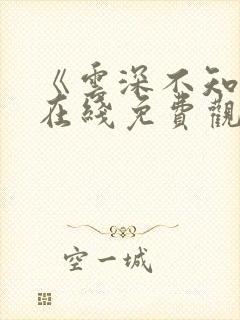 《雲深不知
在綫免費觀
空一城